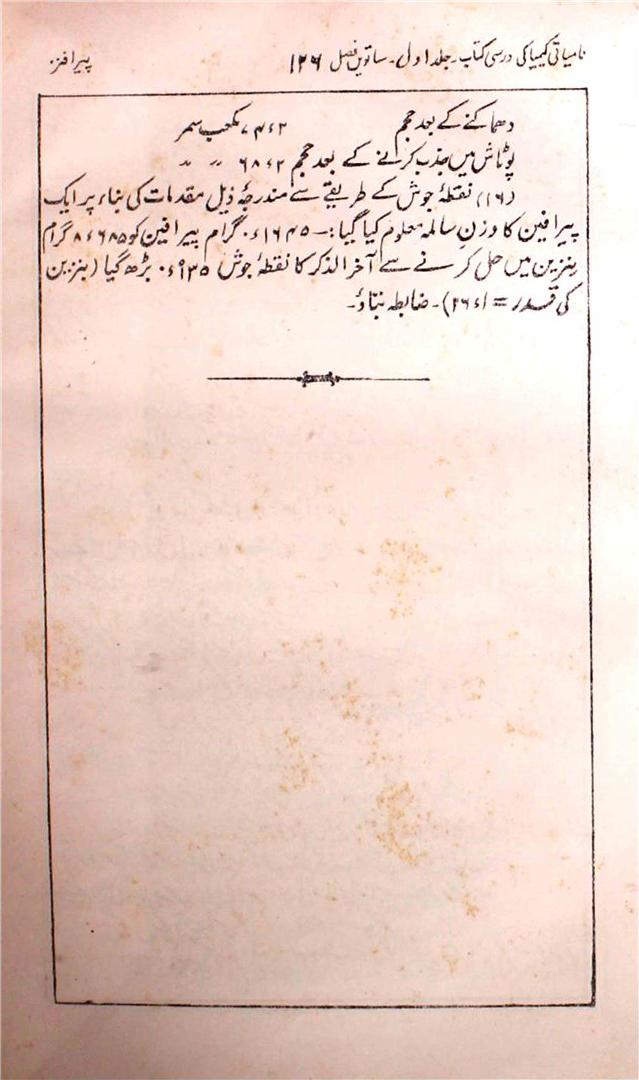 نامیاتی کیمیا کی درسی کتاب۔ جلد اول۔ ساتویں فصل ۱۲۶ پیرافنز
دھماکنے کے بعد حجم ۷۴ء۲ مکعب سمر
پوٹاش میں جذب کرانے کے بعد حجم ۶۸ء۲ ״ ״
(۱۶) نقطۂ جوش کے طریقے سے مندرجۂ ذیل مقدمات کی بناء پر ایک
پیرافین کا وزنِ سالمہ معلوم کیا گیا:۔ ۱۶۴۵ء۰ گرام پیرافین کو ۶۸۵ء۸ گرام
بنزین میں حل کرنے سے آخر الذکر کا نقطۂ جوش ۹۳۵ء۰ بڑھ گیا (بنزین
کی قدر = ۲۶ء۱)۔ ضابطہ بتاؤ۔